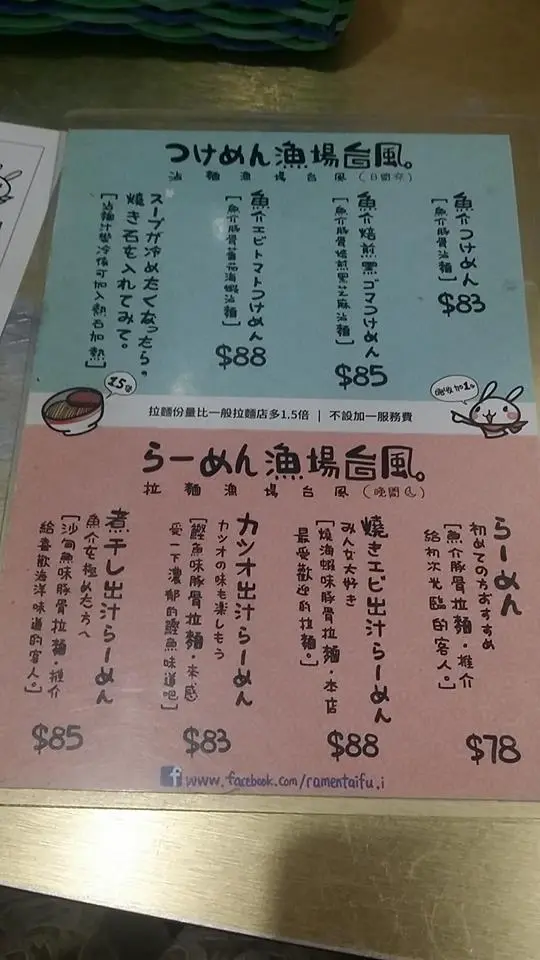 つけめん漁場台風。
沾麵漁場台風(日間
魚介つけめん
[魚介豚骨沾麵]
$83
魚介焙煎黑ゴマつけめん
[魚介豚骨焙煎黑芝麻沾麵]
$85
魚介エビトマトつけめん
[魚介豚骨蕃茄海蝦沾麵]
$88
スープが冷めたくなったら。
燒き石を入れてみて。
[沾麵汁變冷後可加入熱石加熱]
1.5倍
拉麵份量比一般拉麵店多1.5倍 | 不設加一服務費
らーめん漁場台風。
拉麵漁場台風(晚間
らーめん
初めての方おすすめ
[魚介豚骨拉麵·推介
給初次光臨的客人。]
$78
燒きエビ出汁らーめん
みんな大好き
[燒海蝦味豚骨拉麵·本店
最受歡迎的拉麵。]
$88
カツオ出汁らーめん
カツオの味も楽しもう
[鰹魚味豚骨拉麵·來感
受一下濃郁的鰹魚味道吧]
$83
煮干し出汁らーめん
魚介を極めた方へ
[沙甸魚味豚骨拉麵·推介
給喜歡海洋味道的客人。]
$85
f www.facebook.com/ramentaifu.i